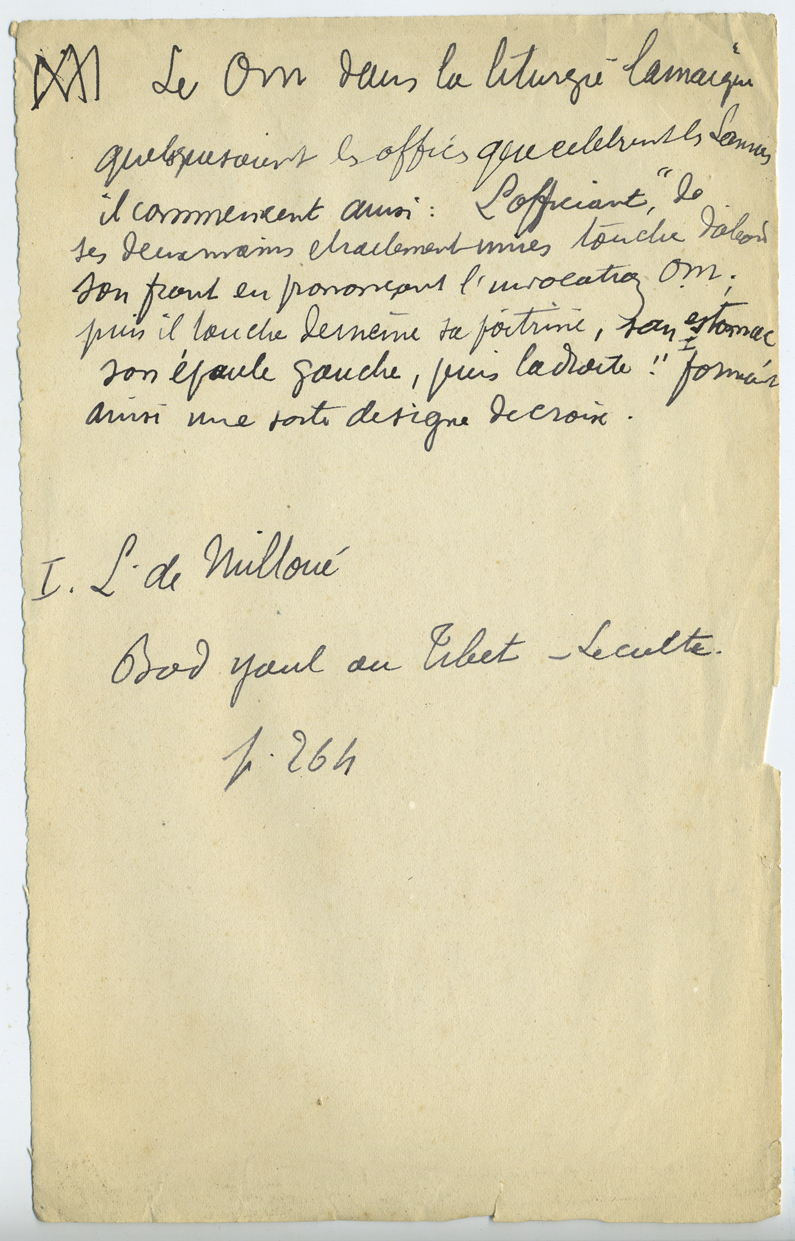 XXI Le Om dans la liturgie lamaïque
quelsque soient les offices que celebrent les Lamas
il commencent ainsi : L'officiant, " de
ses deux mains etroitement unies touche d'abord
son front en prononçant l'invocation Om ;
puis il touche de même sa poitrine, son estomac
son épaule gauche, puis la droite !! I formant
ainsi une sorte de signe de croix .
I. L. de Milloué
Bod youl ou Tibet - Le culte.
p. 264